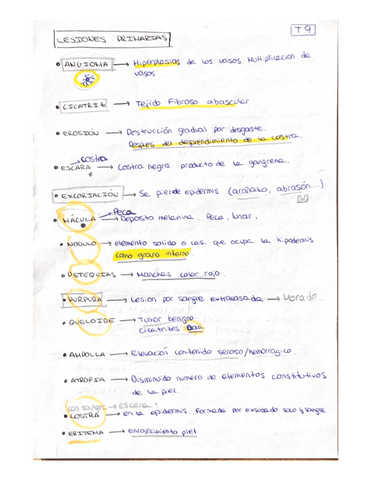 T9
LESIONES PRIMARIAS
• ANGIOMA → Hiperplasias de los vasos Multiplicacion de
vasos
• CICATRIZ → Tejido Fibroso avascular
• EROSIÓN → Destrucción gradual por desgaste.
Despues del desprendimiento de la costra.
Costra
• ESCARA → Costra negra producto de la gangrena.
• EXCORIACIÓN → Se pierde epidermis (arañazo, abrasón...)
Peca
• MÁCULA → Deposito melanina Peca, lunar.
• NODULO → elemento solido o cas. que ocupa la hipodermis
como grano interno.
• PETEQUIAS → Manchas color rojo
• PURPURA → Lesion por sangre extravasada → Morado
• QUELOIDE → Tumor benigno
cicatrices
• AMPOLLA → Elevación contenido seroso/hemorragico.
• ATROFIA → Disminuido numero de elementos constitutivos
de la piel.
con sangre → Escara!
• COSTRA → en la epidermis. Formada por exsudado solo y sangre
• ERITEMA → enrojecimiento piel